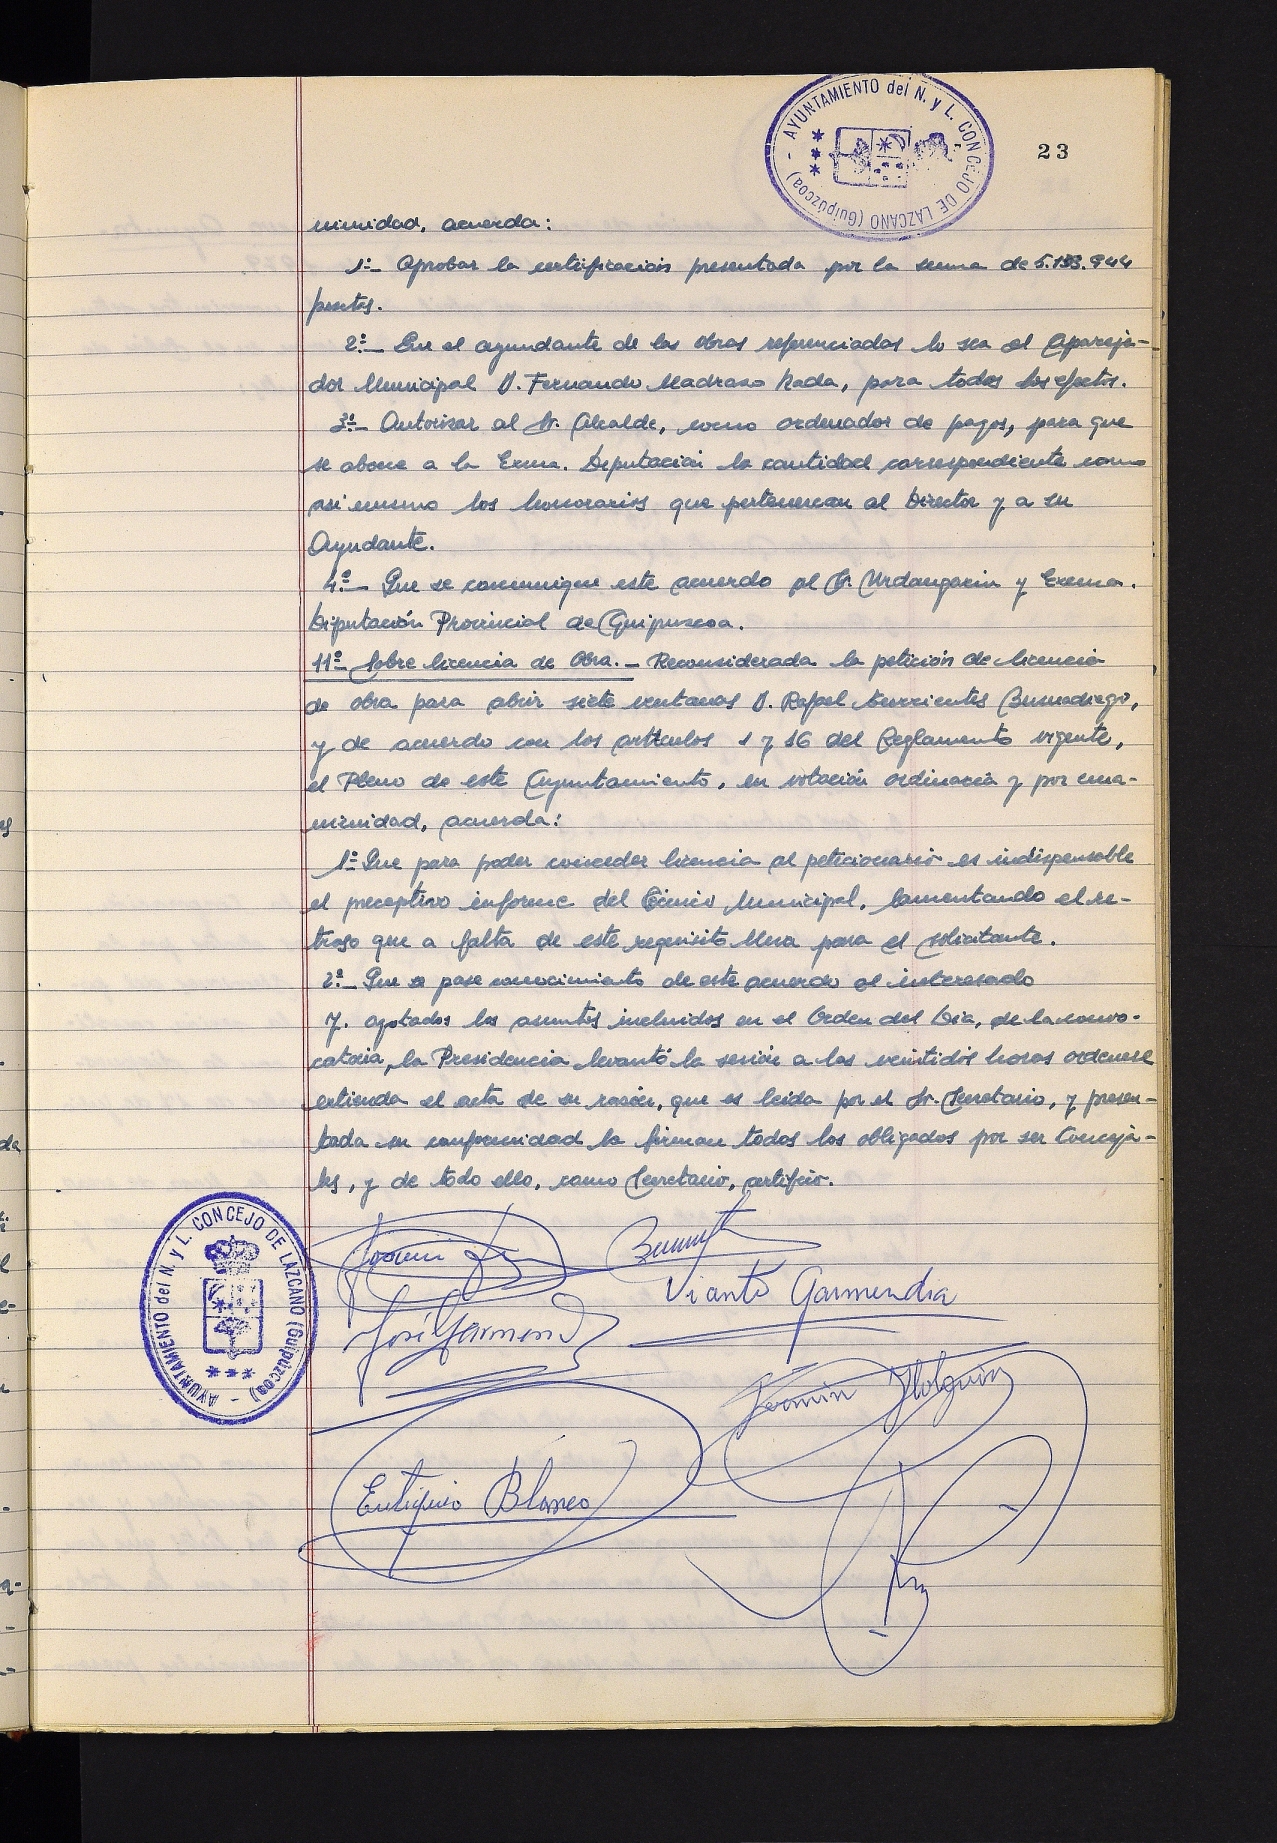 AYUNTAMIENTO del N. y L. CONCEJO DE LAZCANO (Guipúzcoa) -
23
nimidad, acuerda:
1º- Aprobar la certificación presentada por la suma de 5.133.944
pesetas.
2º- Que el ayundante de las obras referenciadas lo sea el Apareja-
dor Municipal D. Fernando Madraso Rada, para todos los efectos.
3º- Autorizar al Sr. Alcalde, como ordenador de pagos, para que
se abone a la Excma. Diputación la cantidad correspondiente como
asi mismo los honorarios que pertenezcan al Director y a su
Ayudante.
4º- Que se comunique este acuerdo al Sr. Urdangarin y Excma.
Diputación Provincial de Guipuscoa.
11º- Sobre licencia de Obra.- Reconsiderada la petición de licencia
de obra para abrir siete ventanas D. Rafael Barrientos Buenadiego,
y de acuerdo con los articulos 1 y 16 del Reglamento vigente,
el Pleno de este Ayuntamiento, en votación ordinaria y por una-
nimidad, acuerda:
1º- Que para poder conceder licencia al peticionario es indispensable
el preceptivo informe del Técnico Municipal, lamentando el re-
traso que a falta de este requisito lleva para el solicitante.
2º- Que se pase conocimiento de este acuerdo al interesado
Y. agotados los asuntos incluidos en el Orden del Dia, de la convo-
catoria, la Presidencia levantó la sesión a las veintidós horas ordenese
extienda el acta de su razón, que es leida por el Sr. Secretario, y presen-
tada su conformidad la firman todos los obligados por ser Conceja-
les, y de todo ello, como Secretario, certifico.
AYUNTAMIENTO del N. y L. CONCEJO DE LAZCANO (Guipúzcoa) -
Vianto Garmendia
José Garmend
Fermin Holguin
Eutiquio Blanco